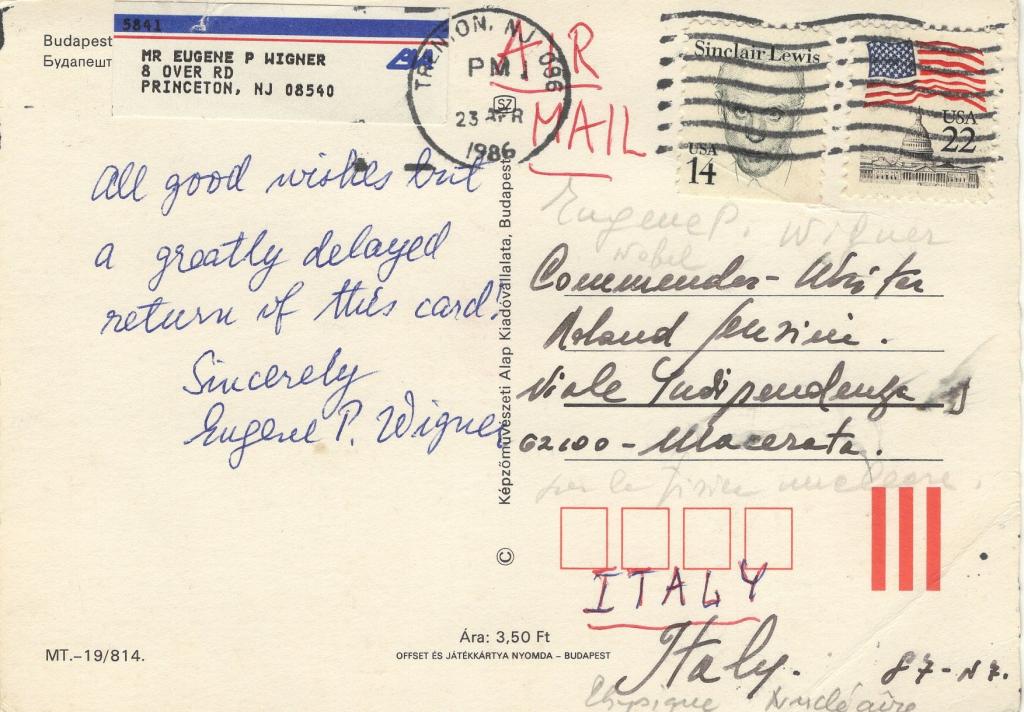 Budapest
Будапешт
5841
MR EUGENE P WIGNER
8 OVER RD
PRINCETON, NJ 08540
TRENTON, NJ 086
PM
23 APR
1986
AIR
MAIL
SZ
Sinclair Lewis
USA
14
USA
22
All good wishes but
a greatly delayed
return of this card!
Sincerely
Eugene P. Wigner
Képzőművészeti Alap Kiadóvállalata, Budapest
©
Eugene P. Wigner
Nobel
Roland
Viale Indipendenza
62100 - Macerata.
ITALY
Italy.
87-N7.
MT.–19/814.
Ára: 3,50 Ft
OFFSET ÉS JÁTÉKKÁRTYA NYOMDA – BUDAPEST